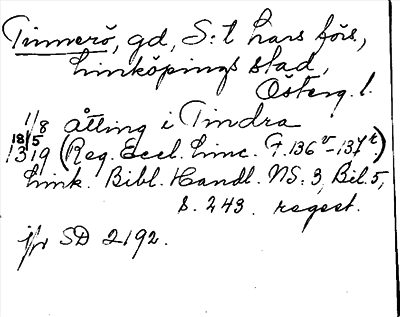 Tinnerö, gd, S:t Lars förs,
Linköpings stad,
Österg. l.
1/8 ätting i Tindra
18/5 1319 (Reg. Eccl. Linc. F. 136v-137r)
Link. Bibl. Handl. NS: 3, Bil. 5,
s. 243. regest.
jfr SD 2192.